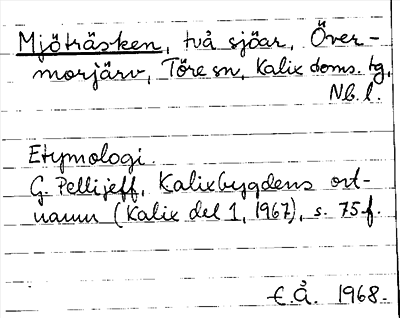 Mjöträsken, två sjöar, Över-
morjärv, Töre sn, Kalix doms. tg,
Nb. l.
Etymologi.
G. Pellijeff, Kalixbygdens ort-
namn (Kalix del 1, 1967), s. 75 f.
E.Å. 1968.